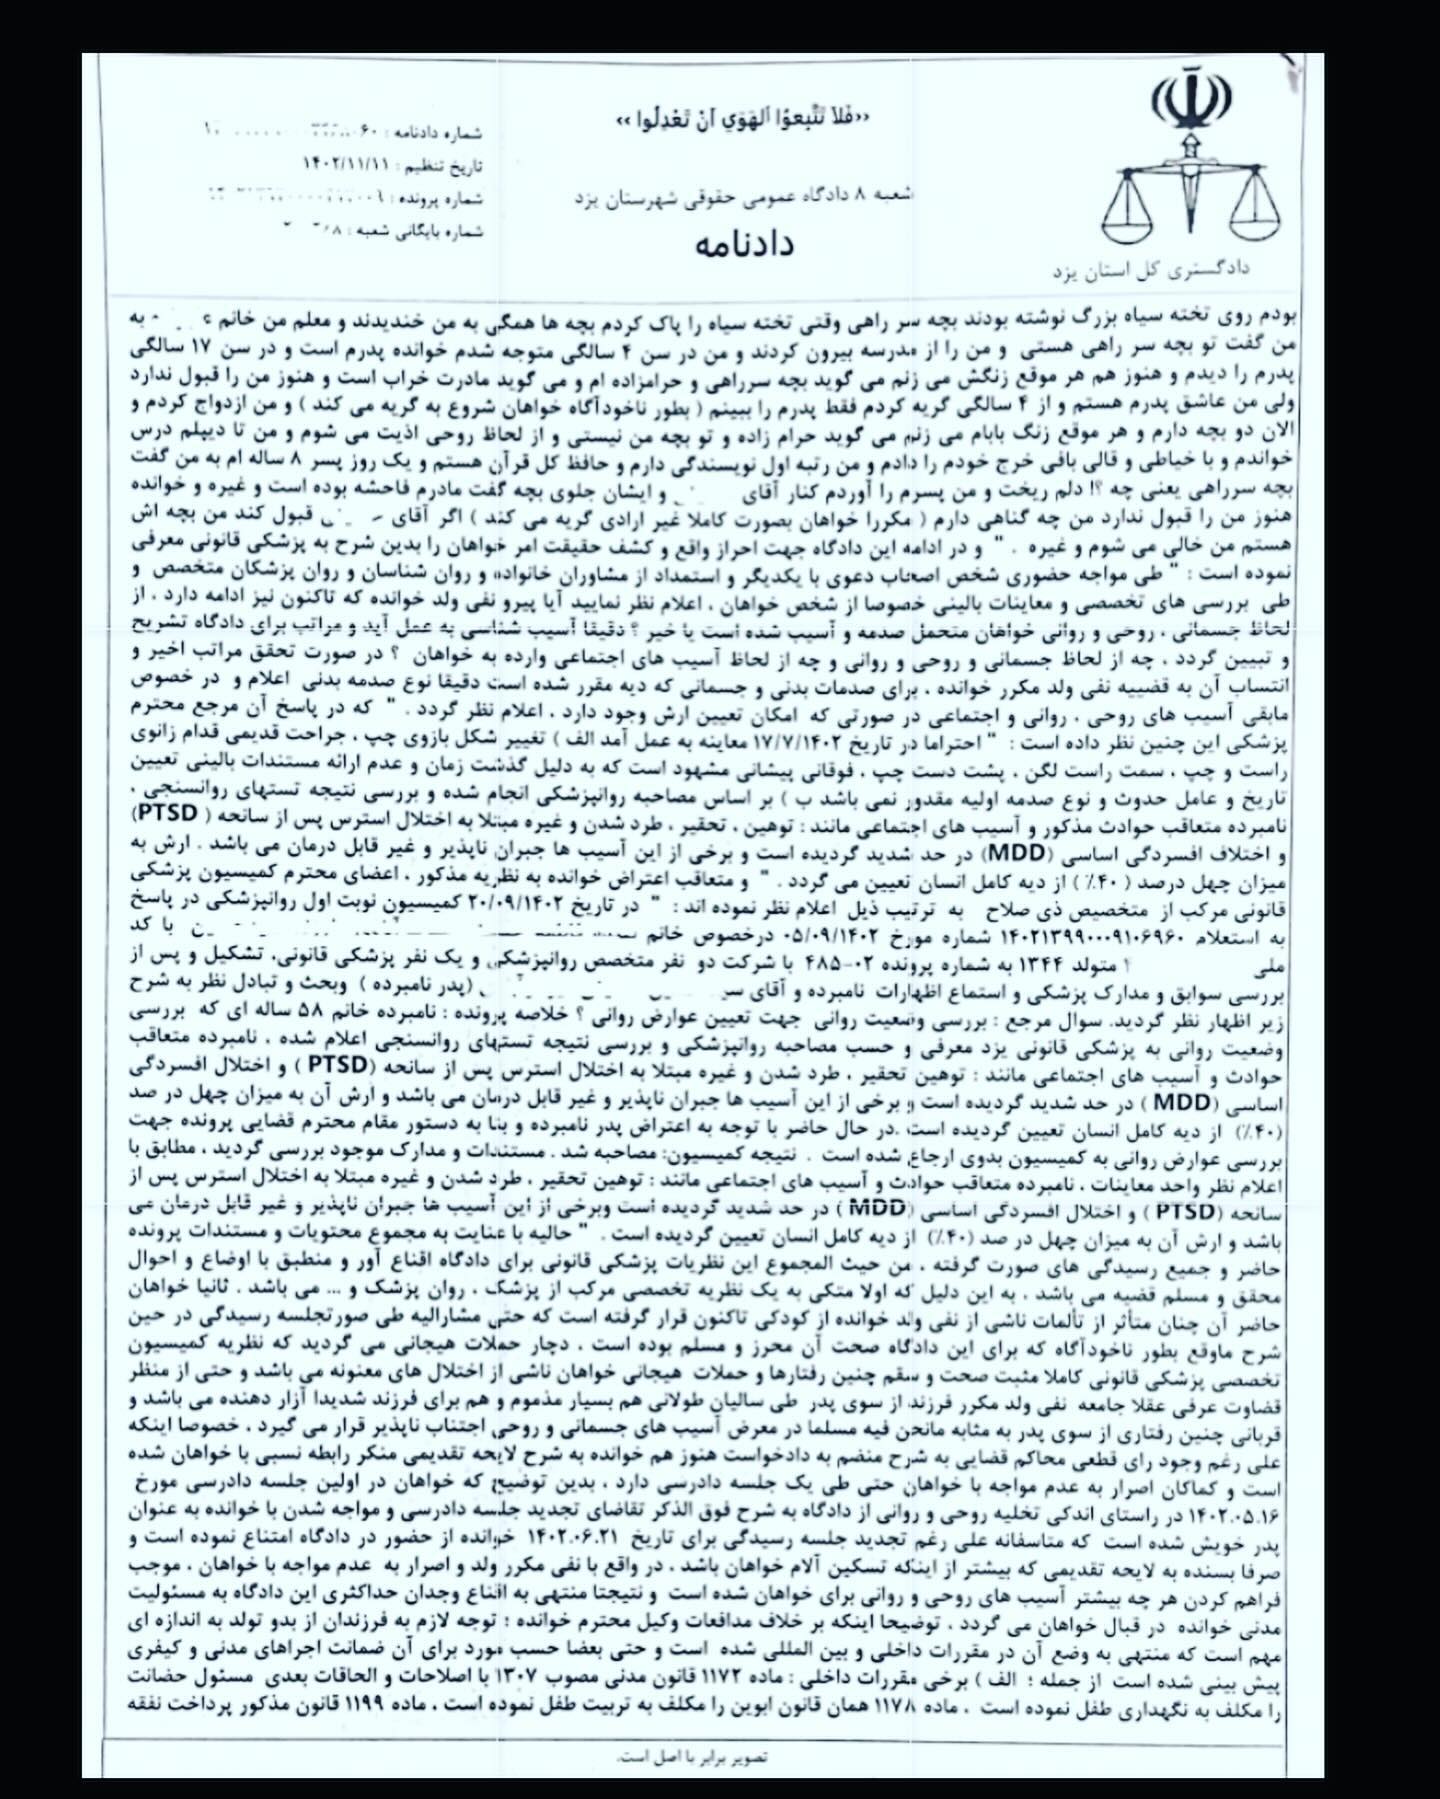 «فَلاَ تَتَّبِعوُا اَلهَوَي اَنْ تَعْدِلُوا»
شماره دادنامه :
تاریخ تنظیم : ۱۴۰۲/۱۱/۱۱
شماره پرونده :
شماره بایگانی شعبه :
شعبه ۸ دادگاه عمومی حقوقی شهرستان یزد
دادنامه
دادگستری کل استان یزد
بودم روی تخته سیاه بزرگ نوشته بودند بچه سر راهی وقتی تخته سیاه را پاک کردم بچه ها همگی به من خندیدند و معلم من خانم به
من گفت تو بچه سر راهی هستی و من را از مدرسه بیرون کردند و من در سن ۴ سالگی متوجه شدم خوانده پدرم است و در سن ۱۷ سالگی
پدرم را دیدم و هنوز هم هر موقع زنگش می زنم می گوید بچه سرراهی و حرامزاده ام و می گوید مادرت خراب است و هنوز من را قبول ندارد
ولی من عاشق پدرم هستم و از ۴ سالگی گریه کردم فقط پدرم را ببینم ( بطور ناخودآگاه خواهان شروع به گریه می کند ) و من ازدواج کردم و
الان دو بچه دارم و هر موقع زنگ بابام می زنم می گوید حرام زاده و تو بچه من نیستی و از لحاظ روحی اذیت می شوم و من تا دیپلم درس
خواندم و با خیاطی و قالی بافی خرج خودم را دادم و من رتبه اول نویسندگی دارم و حافظ کل قرآن هستم و یک روز پسر ۸ ساله ام به من گفت
بچه سرراهی یعنی چه ؟! دلم ریخت و من پسرم را آوردم کنار آقای و ایشان جلوی بچه گفت مادرم فاحشه بوده است و غیره و خوانده
هنوز من را قبول ندارد من چه گناهی دارم ( مکررا خواهان بصورت کاملا غیر ارادی گریه می کند ) اگر آقای قبول کند من بچه اش
هستم من خالی می شوم و غیره . " و در ادامه این دادگاه جهت احراز واقع و کشف حقیقت امر خواهان را بدین شرح به پزشکی قانونی معرفی
نموده است : " طی مواجه حضوری شخص اصحاب دعوی با یکدیگر و استمداد از مشاوران خانواده و روان شناسان و روان پزشکان متخصص و
طی بررسی های تخصصی و معاینات بالینی خصوصا از شخص خواهان ، اعلام نظر نمایید آیا پیرو نفی ولد خوانده که تاکنون نیز ادامه دارد ، از
لحاظ جسمانی ، روحی و روانی خواهان متحمل صدمه و آسیب شده است یا خیر ؟ دقیقا آسیب شناسی به عمل آید و مراتب برای دادگاه تشریح
و تبیین گردد ، چه از لحاظ جسمانی و روحی و روانی و چه از لحاظ آسیب های اجتماعی وارده به خواهان ؟ در صورت تحقق مراتب اخیر و
انتساب آن به قضییه نفی ولد مکرر خوانده ، برای صدمات بدنی و جسمانی که دیه مقرر شده است دقیقا نوع صدمه بدنی اعلام و در خصوص
مابقی آسیب های روحی ، روانی و اجتماعی در صورتی که امکان تعیین ارش وجود دارد ، اعلام نظر گردد . " که در پاسخ آن مرجع محترم
پزشکی این چنین نظر داده است : " احتراما در تاریخ ۱۷/۷/۱۴۰۲ معاینه به عمل آمد الف ) تغییر شکل بازوی چپ ، جراحت قدیمی قدام زانوی
راست و چپ ، سمت راست لگن ، پشت دست چپ ، فوقانی پیشانی مشهود است که به دلیل گذشت زمان و عدم ارائه مستندات بالینی تعیین
تاریخ و عامل حدوث و نوع صدمه اولیه مقدور نمی باشد ب ) بر اساس مصاحبه روانپزشکی انجام شده و بررسی نتیجه تستهای روانسنجی ،
نامبرده متعاقب حوادث مذکور و آسیب های اجتماعی مانند : توهین ، تحقیر ، طرد شدن و غیره مبتلا به اختلال استرس پس از سانحه ( PTSD)
و اختلاف افسردگی اساسی (MDD) در حد شدید گردیده است و برخی از این آسیب ها جبران ناپذیر و غیر قابل درمان می باشد . ارش به
میزان چهل درصد ( ۴۰٪ ) از دیه کامل انسان تعیین می گردد . " و متعاقب اعتراض خوانده به نظریه مذکور ، اعضای محترم کمیسیون پزشکی
قانونی مرکب از متخصیص ذی صلاح به ترتیب ذیل اعلام نظر نموده اند : " در تاریخ ۲۰/۰۹/۱۴۰۲ کمیسیون نوبت اول روانپزشکی در پاسخ
به استعلام ۱۴۰۲۱۳۹۹۰۰۰۹۱۰۶۹۶۰ شماره مورخ ۰۵/۰۹/۱۴۰۲ درخصوص خانم با کد
ملی متولد ۱۳۴۴ به شماره پرونده ۰۲-۴۸۵ با شرکت دو نفر متخصص روانپزشکی و یک نفر پزشکی قانونی، تشکیل و پس از
بررسی سوابق و مدارک پزشکی و استماع اظهارات نامبرده و آقای (پدر نامبرده ) وبحث و تبادل نظر به شرح
زیر اظهار نظر گردید. سوال مرجع : بررسی وضعیت روانی جهت تعیین عوارض روانی ؟ خلاصه پرونده : نامبرده خانم ۵۸ ساله ای که بررسی
وضعیت روانی به پزشکی قانونی یزد معرفی و حسب مصاحبه روانپزشکی و بررسی نتیجه تستهای روانسنجی اعلام شده ، نامبرده متعاقب
حوادث و آسیب های اجتماعی مانند : توهین تحقیر ، طرد شدن و غیره مبتلا به اختلال استرس پس از سانحه (PTSD ) و اختلال افسردگی
اساسی (MDD ) در حد شدید گردیده است و برخی از این آسیب ها جبران ناپذیر و غیر قابل درمان می باشد و ارش آن به میزان چهل در صد
(۴۰٪) از دیه کامل انسان تعیین گردیده است .در حال حاضر با توجه به اعتراض پدر نامبرده و بنا به دستور مقام محترم قضایی پرونده جهت
بررسی عوارض روانی به کمیسیون بدوی ارجاع شده است . نتیجه کمیسیون: مصاحبه شد . مستندات و مدارک موجود بررسی گردید ، مطابق با
اعلام نظر واحد معاینات ، نامبرده متعاقب حوادث و آسیب های اجتماعی مانند : توهین تحقیر ، طرد شدن و غیره مبتلا به اختلال استرس پس از
سانحه (PTSD ) و اختلال افسردگی اساسی (MDD ) در حد شدید گردیده است وبرخی از این آسیب ها جبران ناپذیر و غیر قابل درمان می
باشد و ارش آن به میزان چهل در صد (۴۰٪) از دیه کامل انسان تعیین گردیده است . " حالیه با عنایت به مجموع محتویات و مستندات پرونده
حاضر و جمیع رسیدگی های صورت گرفته ، من حیث المجموع این نظریات پزشکی قانونی برای دادگاه اقناع آور و منطبق با اوضاع و احوال
محقق و مسلم قضیه می باشد ، به این دلیل که اولا متکی به یک نظریه تخصصی مرکب از پزشک ، روان پزشک و ... می باشد . ثانیا خواهان
حاضر آن چنان متأثر از تألمات ناشی از نفی ولد خوانده از کودکی تاکنون قرار گرفته است که حتی مشارالیه طی صورتجلسه رسیدگی در حین
شرح ماوقع بطور ناخودآگاه که برای این دادگاه صحت آن محرز و مسلم بوده است ، دچار حملات هیجانی می گردید که نظریه کمیسیون
تخصصی پزشکی قانونی کاملا مثبت صحت و سقم چنین رفتارها و حملات هیجانی خواهان ناشی از اختلال های معنونه می باشد و حتی از منظر
قضاوت عرفی عقلا جامعه نفی ولد مکرر فرزند از سوی پدر طی سالیان طولانی هم بسیار مذموم و هم برای فرزند شدیدا آزار دهنده می باشد و
قربانی چنین رفتاری از سوی پدر به مثابه مانحن فیه مسلما در معرض آسیب های جسمانی و روحی اجتناب ناپذیر قرار می گیرد ، خصوصا اینکه
علی رغم وجود رای قطعی محاکم قضایی به شرح منضم به دادخواست هنوز هم خوانده به شرح لایحه تقدیمی منکر رابطه نسبی با خواهان شده
است و کماکان اصرار به عدم مواجه با خواهان حتی طی یک جلسه دادرسی دارد ، بدین توضیح که خواهان در اولین جلسه دادرسی مورخ
۱۴۰۲.۰۵.۱۶ در راستای اندکی تخلیه روحی و روانی از دادگاه به شرح فوق الذکر تقاضای تجدید جلسه دادرسی و مواجه شدن با خوانده به عنوان
پدر خویش شده است که متاسفانه علی رغم تجدید جلسه رسیدگی برای تاریخ ۱۴۰۲.۰۶.۲۱ خوانده از حضور در دادگاه امتناع نموده است و
صرفا بسنده به لایحه تقدیمی که بیشتر از اینکه تسکین آلام خواهان باشد ، در واقع با نفی مکرر ولد و اصرار به عدم مواجه با خواهان ، موجب
فراهم کردن هر چه بیشتر آسیب های روحی و روانی برای خواهان شده است و نتیجتا منتهی به اقناع وجدان حداکثری این دادگاه به مسئولیت
مدنی خوانده در قبال خواهان می گردد ، توضیحا اینکه بر خلاف مدافعات وکیل محترم خوانده ؛ توجه لازم به فرزندان از بدو تولد به اندازه ای
مهم است که منتهی به وضع آن در مقررات داخلی و بین المللی شده است و حتی بعضا حسب مورد برای آن ضمانت اجراهای مدنی و کیفری
پیش بینی شده است از جمله ؛ الف ) برخی مقررات داخلی : ماده ۱۱۷۲ قانون مدنی مصوب ۱۳۰۷ با اصلاحات و الحاقات بعدی مسئول حضانت
را مکلف به نگهداری طفل نموده است . ، ماده ۱۱۷۸ همان قانون ابوین را مکلف به تربیت طفل نموده است ، ماده ۱۱۹۹ قانون مذکور پرداخت نفقه
تصویر برابر با اصل است.